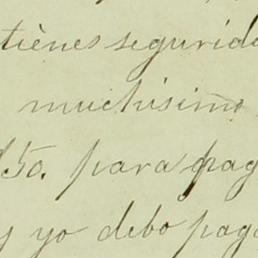 tiènes segurida
muchisimo
50. para pag
y yo debo paga